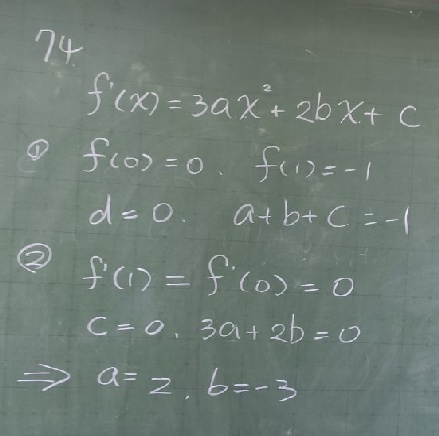 74.
f'(x) = 3ax² + 2bx + c
① f(0) = 0. f(1) = -1
d = 0. a + b + c = -1
② f'(1) = f'(0) = 0
c = 0. 3a + 2b = 0
⇒ a = 2. b = -3